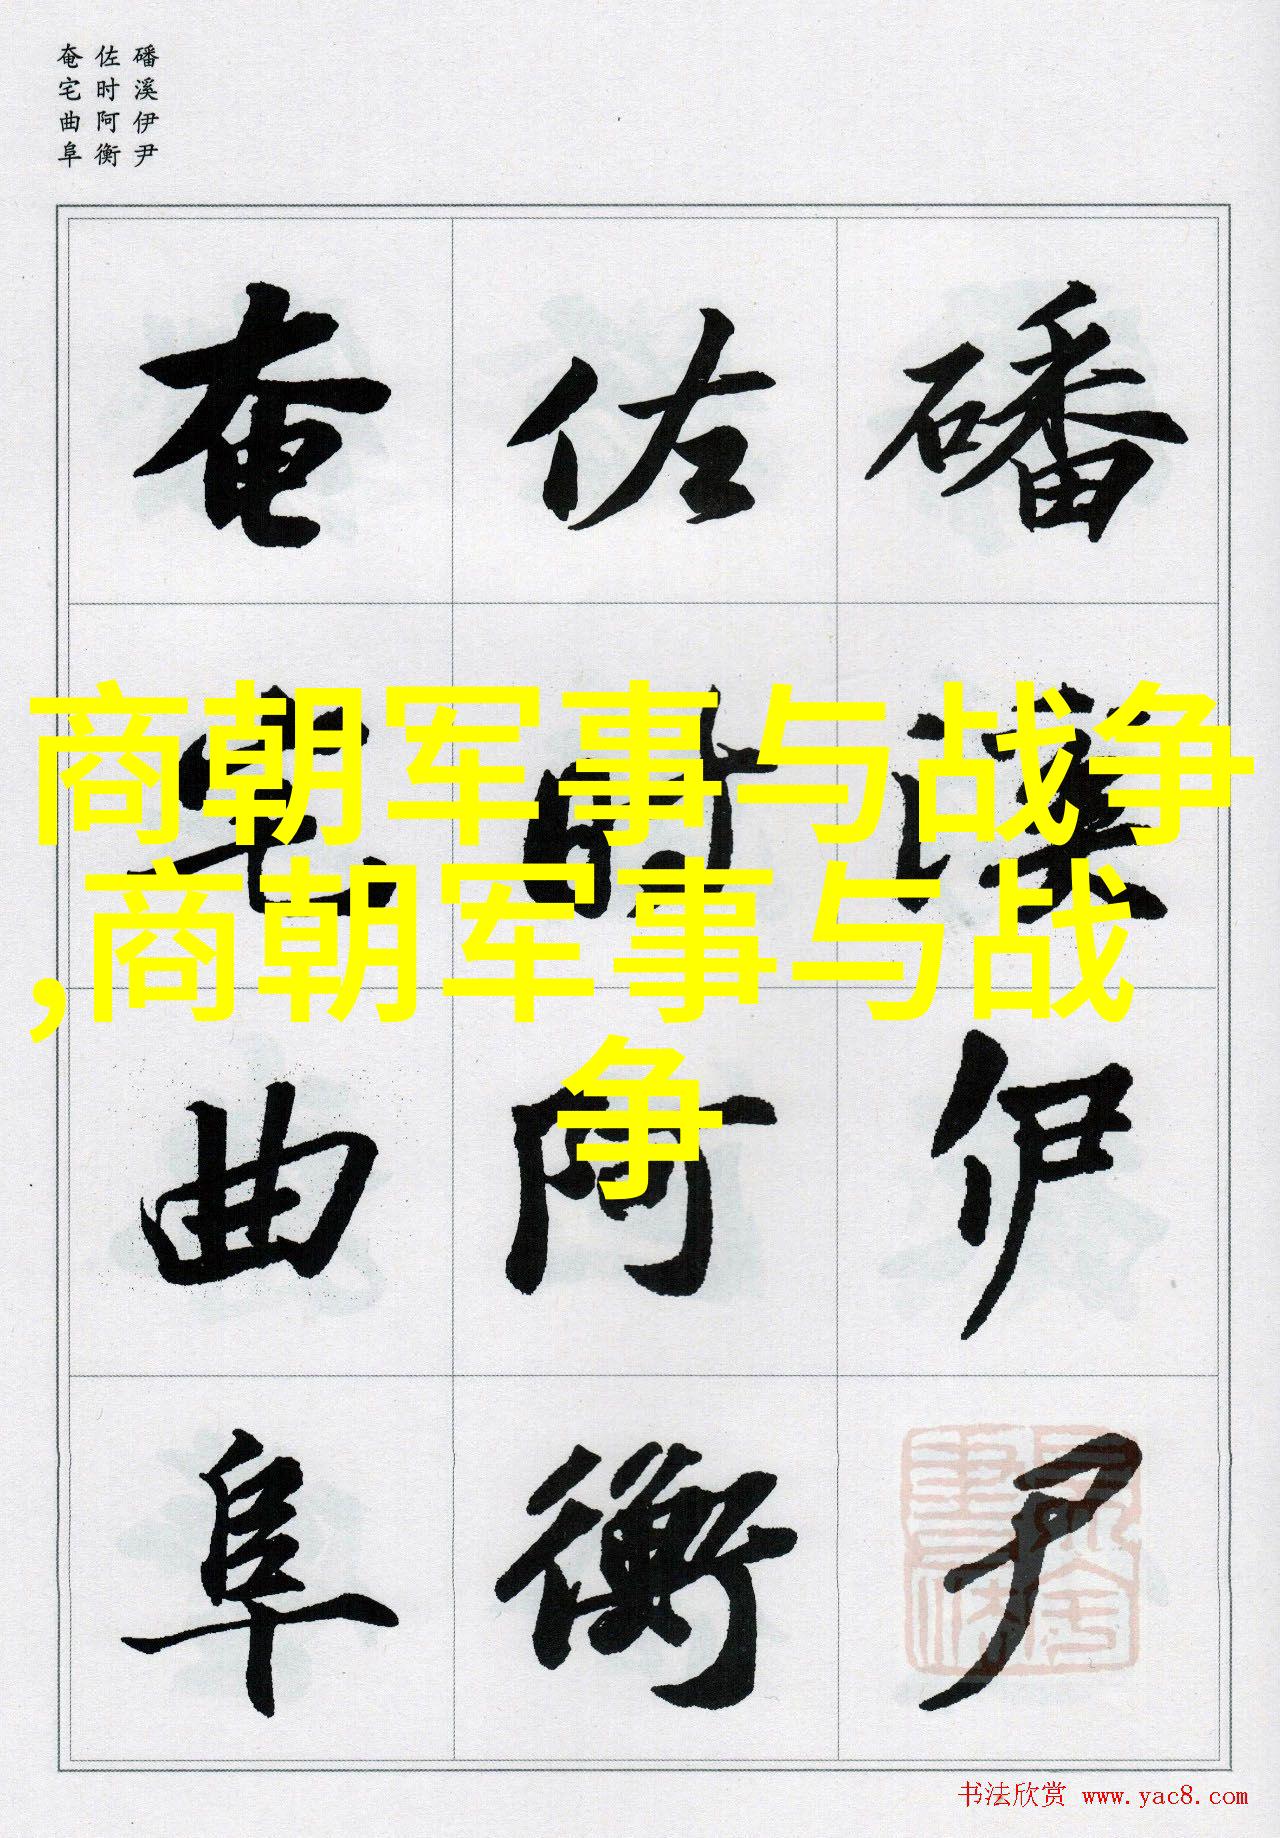 磻溪伊尹
佐时阿衡
奄宅曲阜
磻溪伊尹
佐时阿衡
奄宅曲阜
商朝军事与战争
,商朝军事与战
争
书法欣赏 www.yac8.com